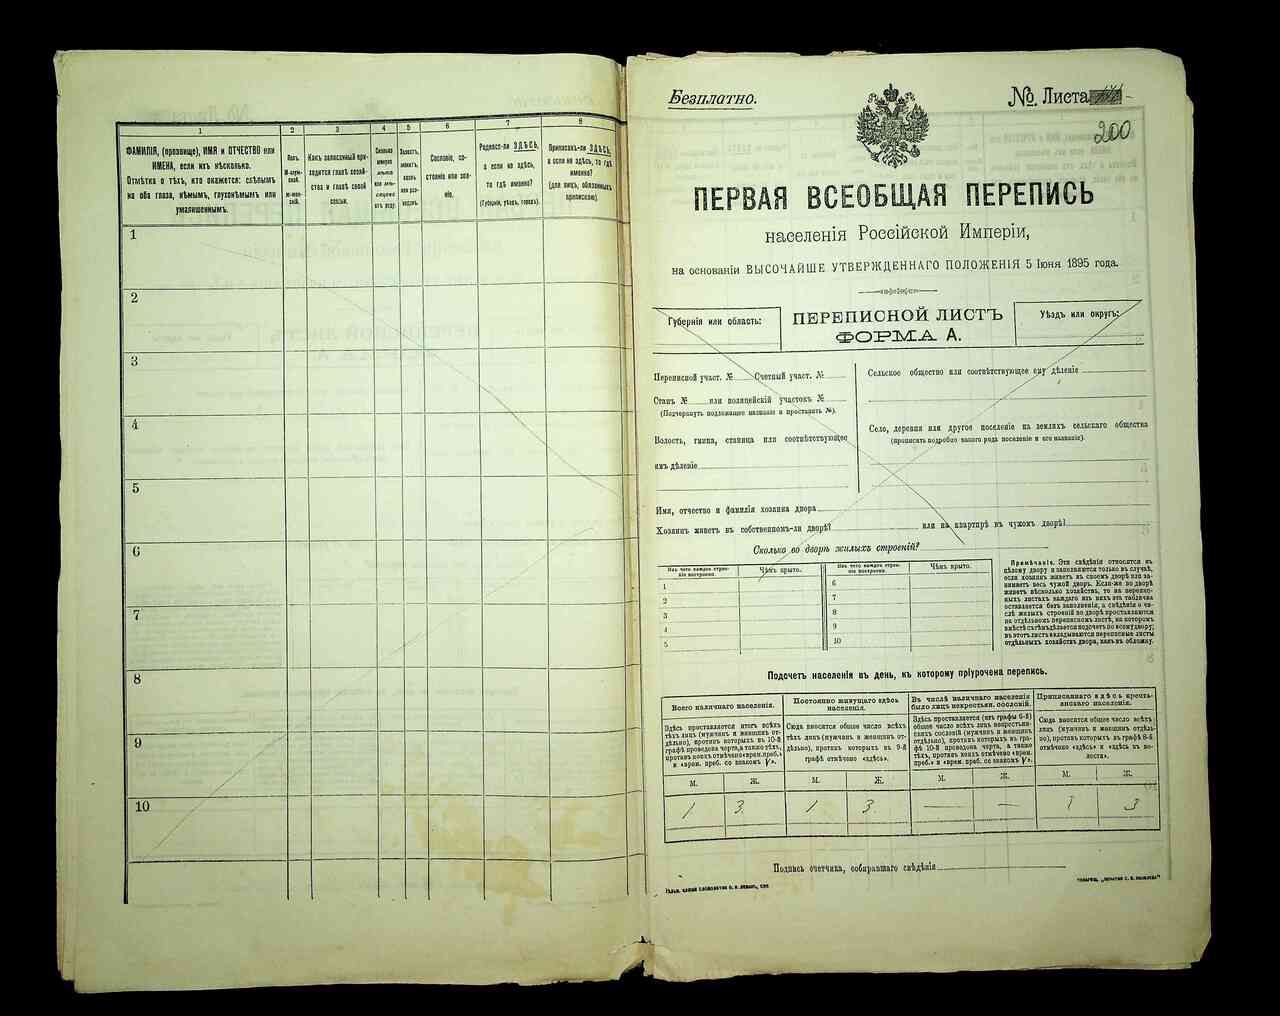 1 2 3 4 5 6 7 8
ФАМИЛІЯ, (прозвище), ИМЯ и ОТЧЕСТВО или
ИМЕНА, если ихъ нѣсколько.
Отмѣтка о тѣхъ, кто окажется: слѣпымъ
на оба глаза, нѣмымъ, глухонѣмымъ или
умалишеннымъ.
Полъ.
М-мужской.
Ж-женскій.
Какъ записанный при-
ходится главѣ хозяй-
ства и главѣ своей
семьи.
Сколько
минуло
лѣтъ
или мѣ-
сяцевъ
отъ роду.
Холостъ,
женатъ,
вдовъ
или раз-
веденъ.
Сословіе, со-
стояніе или зва-
ніе.
Родился-ли ЗДѢСЬ,
а если не здѣсь,
то гдѣ именно?
(Губернія, уѣздъ, городъ).
Приписанъ-ли ЗДѢСЬ,
а если не здѣсь, то гдѣ
именно?
(для лицъ, обязанныхъ
припискою).
1
2
3
4
5
6
7
8
9
10
Безплатно.
№ Листа
200
ПЕРВАЯ ВСЕОБЩАЯ ПЕРЕПИСЬ
населенія Россійской Имперіи,
на основаніи ВЫСОЧАЙШЕ УТВЕРЖДЕННАГО ПОЛОЖЕНІЯ 5 Іюня 1895 года.
Губернія или область:
ПЕРЕПИСНОЙ ЛИСТЪ
ФОРМА А.
Уѣздъ или округъ:
Переписной участ. № Счетный участ. №
Станъ № или полицейскій участокъ №
(Подчеркнуть подлежащее названіе и проставить №).
Волость, гмина, станица или соотвѣтствующее
имъ дѣленіе
Сельское общество или соотвѣтствующее ему дѣленіе
Село, деревня или другое поселеніе на земляхъ сельскаго общества
(прописать подробно какого рода поселеніе и его названіе).
Имя, отчество и фамилія хозяина двора
Хозяинъ живетъ въ собственномъ-ли дворѣ? или на квартирѣ въ чужомъ дворѣ?
Сколько во дворѣ жилыхъ строеній?
Изъ чего каждое строе-
ніе построено.
Чѣмъ крыто.
Изъ чего каждое строе-
ніе построено.
Чѣмъ крыто.
1 6
2 7
3 8
4 9
5 10
Примѣчаніе. Эти свѣдѣнія относятся къ
цѣлому двору и заполняются только въ случаѣ,
если хозяинъ живетъ въ своемъ дворѣ или за-
нимаетъ весь чужой дворъ. Если-же во дворѣ
живетъ нѣсколько хозяйствъ, то на перепис-
ныхъ листахъ каждаго изъ нихъ эта табличка
оставляется безъ заполненія, а свѣдѣнія о чи-
слѣ жилыхъ строеній во дворѣ проставляются
на отдѣльномъ переписномъ листѣ, на которомъ
вмѣстѣ съ тѣмъ дѣлается подсчетъ по всему двору;
въ этотъ листъ вкладываются переписные листы
отдѣльныхъ хозяйствъ двора, какъ въ обложку.
Подсчетъ населенія въ день, къ которому пріурочена перепись.
Всего наличнаго населенія.
Постоянно живущаго здѣсь
населенія.
Въ числѣ наличнаго населенія
было лицъ некрестьян. сословій.
Приписаннаго здѣсь кресть-
янскаго населенія.
Здѣсь проставляется итогъ всѣхъ
тѣхъ лицъ (мужчинъ и женщинъ от-
дѣльно), противъ которыхъ въ 10-й
графѣ проведена черта, а также тѣхъ,
противъ коихъ отмѣчено «врем. преб.»
и «врем. преб. со знакомъ V».
Сюда вносится общее число всѣхъ
тѣхъ лицъ (мужчинъ и женщинъ от-
дѣльно), противъ которыхъ въ 9-й
графѣ отмѣчено «здѣсь».
Здѣсь проставляется (изъ графы 6-й)
общее число всѣхъ лицъ некрестьян-
скихъ сословій (мужчинъ и женщинъ
отдѣльно), противъ которыхъ въ гра-
фѣ 10-й проведена черта, а также
тѣхъ, противъ коихъ отмѣчено «врем.
преб.» и «врем. преб. со знакомъ V».
Сюда вносится общее число всѣхъ
лицъ (мужчинъ и женщинъ отдѣль-
но), противъ которыхъ въ графѣ 8-й
отмѣчено «здѣсь» и «здѣсь въ во-
лости».
М. Ж. М. Ж. М. Ж. М. Ж.
1 3. 1 3. — — 1 3
Подпись счетчика, собиравшаго свѣдѣнія